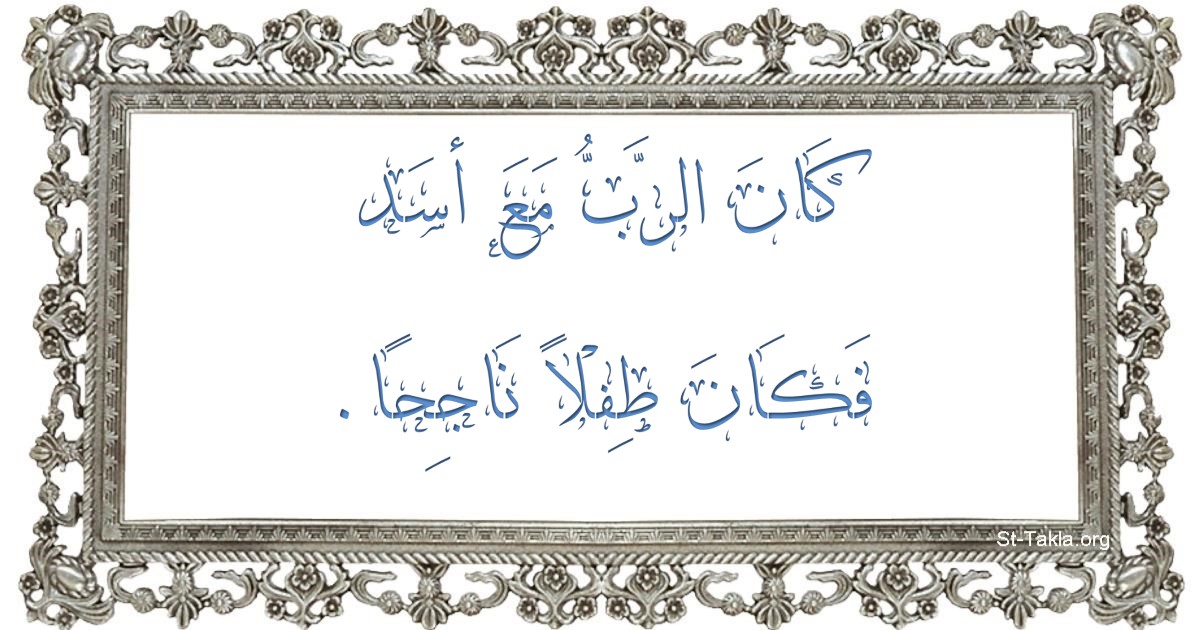 كَانَ الرَّبُّ مَعَ أسَد
فَكَانَ طِفْلاً نَاجِحًا .
St-Takla.org